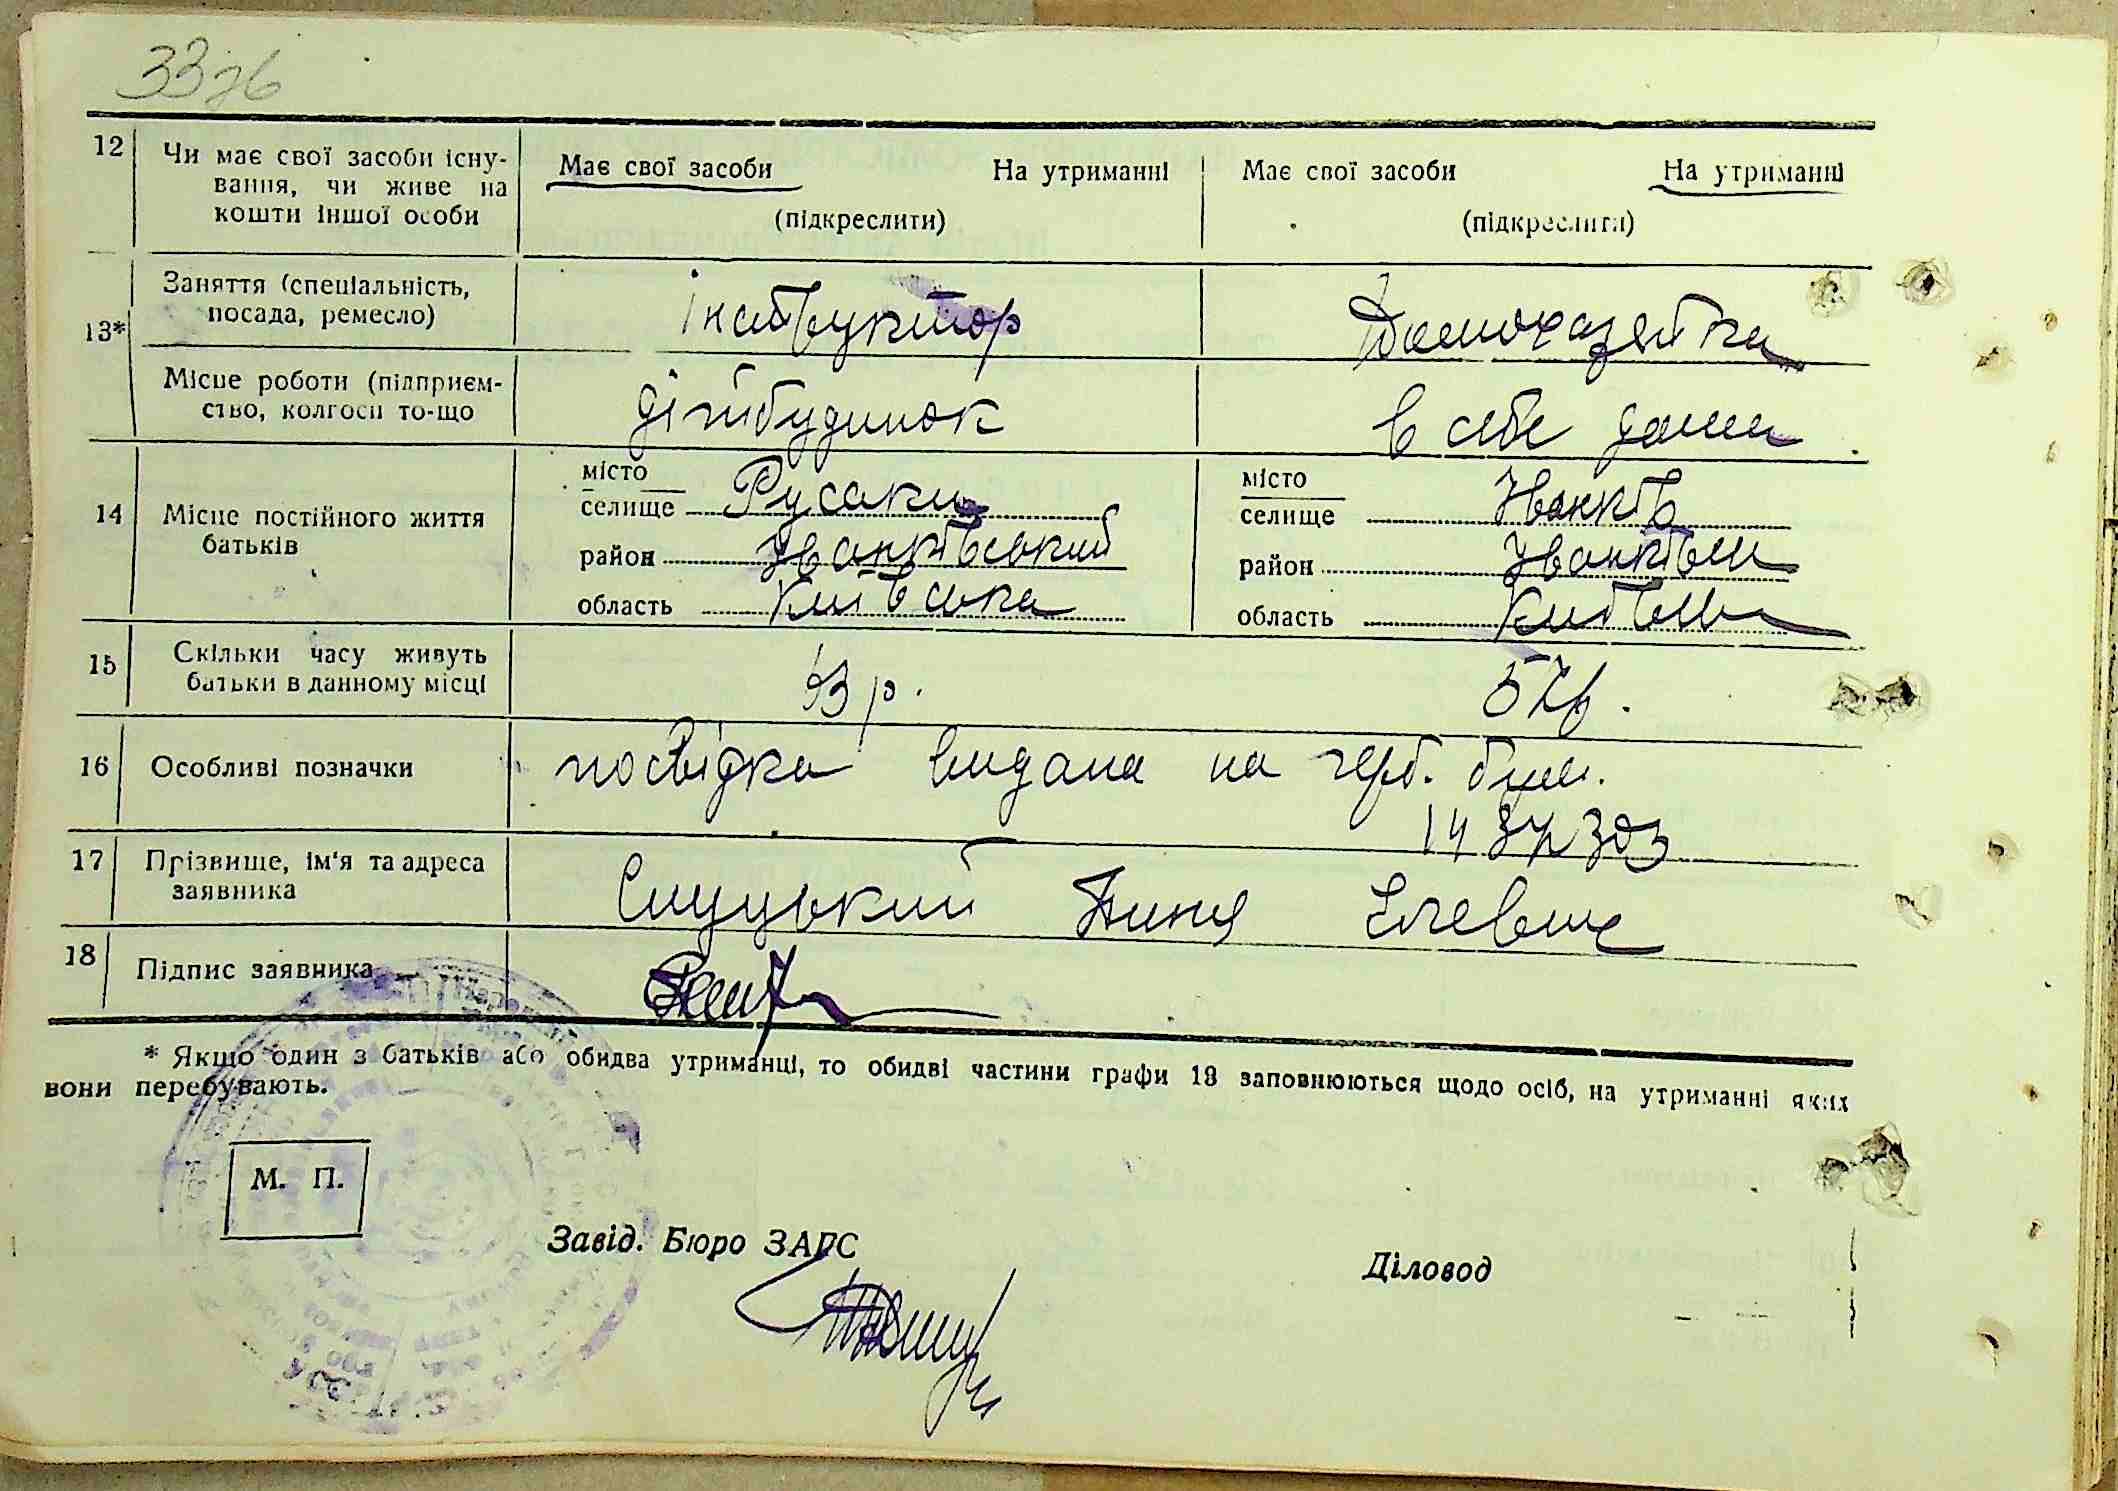 33зв
12 Чи має свої засоби існу-
вання, чи живе на
кошти іншої особи
Має свої засоби На утриманні
(підкреслити)
Має свої засоби На утриманні
(підкреслити)
13*
Заняття (спеціальність,
посада, ремесло)
інструктор
Домохазяйка
Місце роботи (підприєм-
ство, колгосп то-що
дітбудинок
в себе дома
14 Місце постійного життя
батьків
місто
селище Русаки
район Іванківський
область Київська
місто
селище Іванків
район Іванківськ
область Київськ
15 Скільки часу живуть
батьки в данному місці
3 р.
5 р.
16 Особливі позначки
посвідка видана на герб. блан.
17 Прізвище, ім'я та адреса
заявника
Слуцький
18 Підпис заявника
* Якщо один з батьків або обидва утриманці, то обидві частини графи 13 заповнюються щодо осіб, на утриманні яких
вони перебувають.
М. П.
Завід. Бюро ЗАГС
Діловод